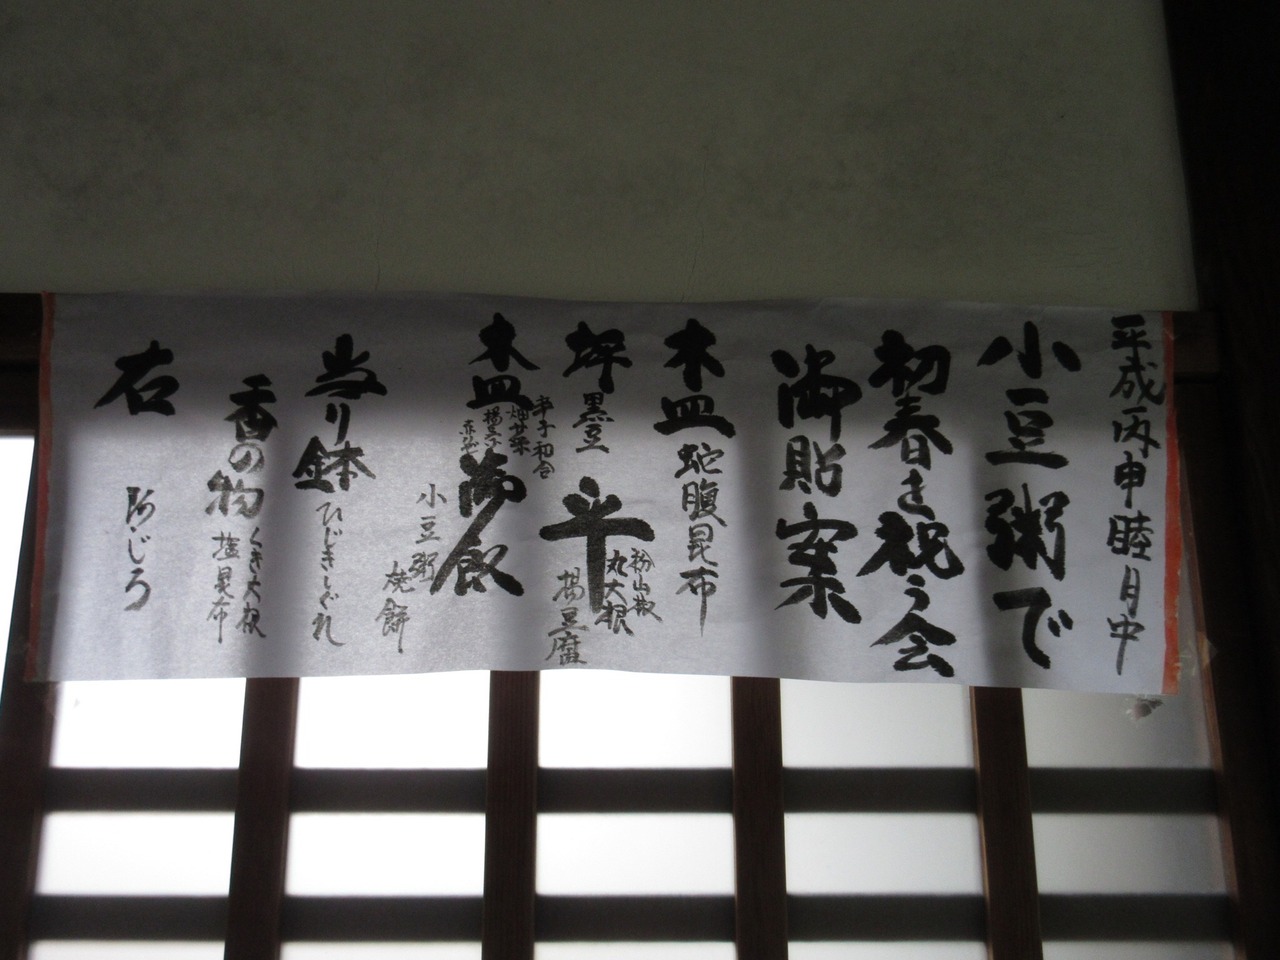 平成丙申睦月中
小豆粥で
初春を祝う会
御貼案
木皿 蛇腹昆布
坪 黒豆
平 粉山椒
丸大根
揚豆腐
木皿
御飯
小豆粥
焼餅
当り鉢 ひじきしぐれ
香の物 くき大根
塩昆布
右 あじろ